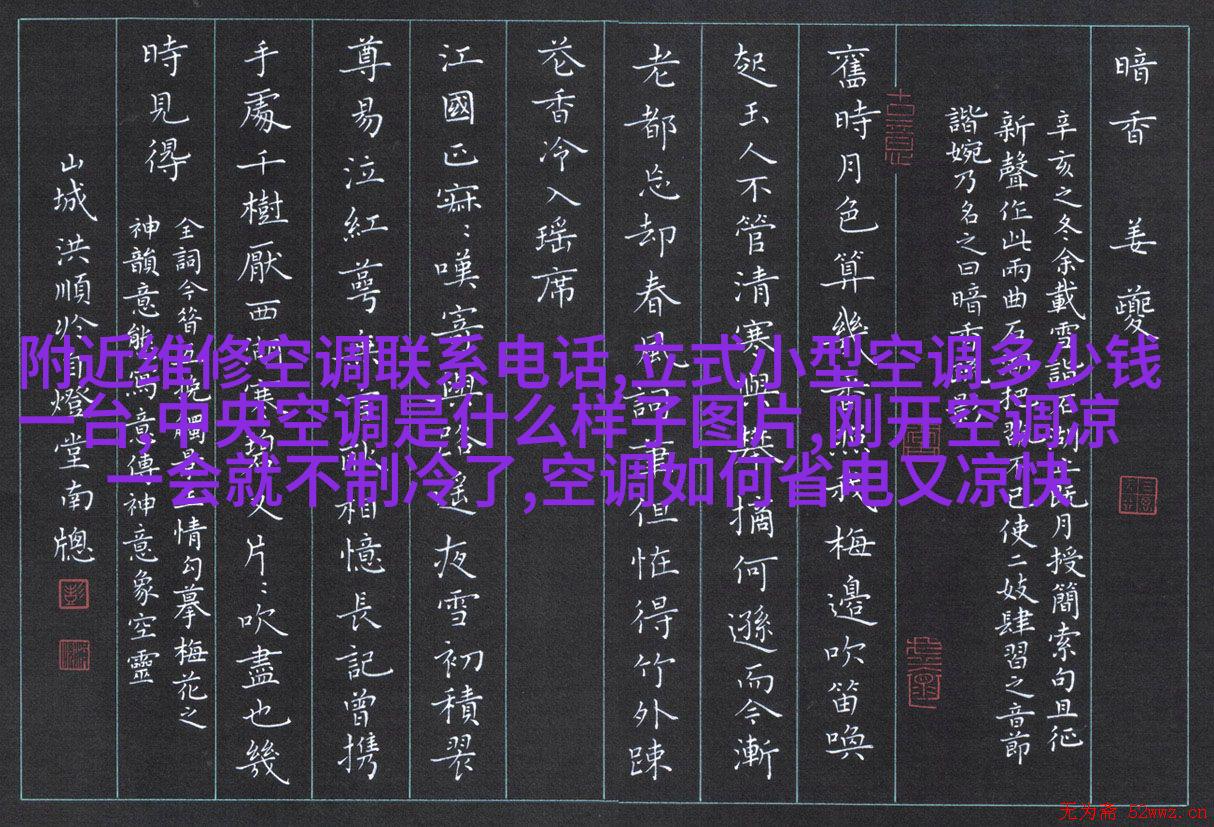 附近维修空调联系电话,立式小型空调多少钱
一台,中央空调是什么样子图片,刚开空调凉
一会就不制冷了,空调如何省电又凉快
暗香 姜夔
辛亥之冬余載雪詣石湖止既月授簡索句且征
新聲作此兩曲石湖把不已使二妓肆習之音節
諧婉乃名之曰暗香疏影
古意
舊時月色算幾番照我梅邊吹笛喚
起玉人不管清寒與攀摘何遜而今漸
老都忘却春風詞筆但恠得竹外踈
花香冷入瑶席
江國正寂:嘆寄與路遥夜雪初積翠
尊易泣紅萼無言耿相憶長記曾携
手處千樹壓西湖寒碧又片:吹盡也幾
時見得
全詞今昔互挽觸景生情勾摹梅花之
神韻意能寫意傳神意象空靈
山城洪順於燈堂南牕
无为斋 52wwz.cn